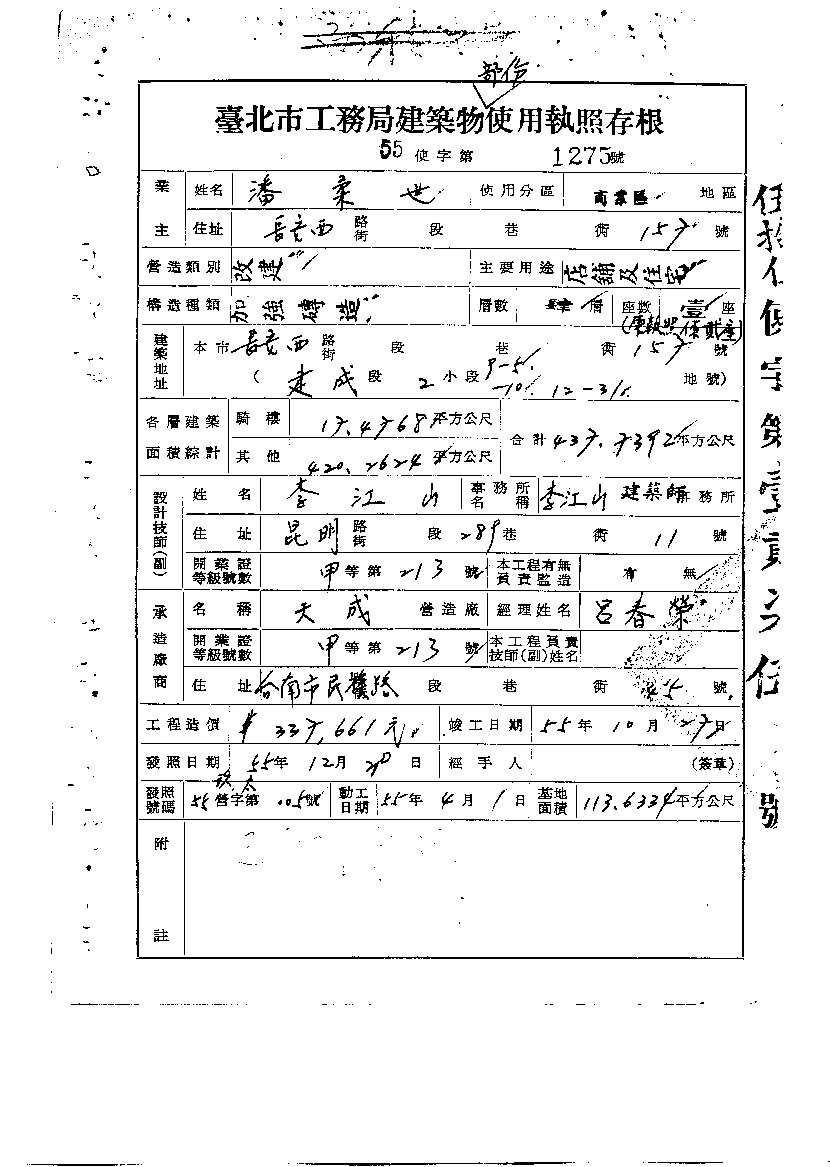 部份
臺北市工務局建築物使用執照存根
55 使字第 1275號
業主 姓名 潘柔世 使用分區 商業區 地區
住址 長安西 路街 段 巷 街 157 號
營造類別 改建 主要用途 店舖及住宅
構造種類 加強磚造 層數 肆 層 座數 壹 座
(原執照 係貳座)
建築地址 本市 長安西 路街 段 巷 街 157 號
( 建成 段 2 小段 9-5 -10 12-3 地號)
各層建築面積綜計 騎樓 17.4768 平方公尺 合計 437.7392 平方公尺
其他 420.2624 平方公尺
設計技師(副) 姓名 李江山 事務所名稱 李江山 建築師事務所
住址 昆明 路街 段 289 巷 街 11 號
開業證等級號數 甲 等第 213 號 本工程有無負責監造 有 無
承造廠商 名稱 天成 營造廠 經理姓名 呂春榮
開業證等級號數 甲 等第 213 號 本工程負責技師(副)姓名
住址 台南市民權路 段 巷 街 號
工程造價 $ 337,661元. 竣工日期 55年 10月 27日
發照日期 55年 12月 20日 經手人 (簽章)
發照號碼 55 營字第 005號 動工日期 55年 4月 1日 基地面積 113.6334 平方公尺
附註
伍拾伍使字第壹貳 伍 號